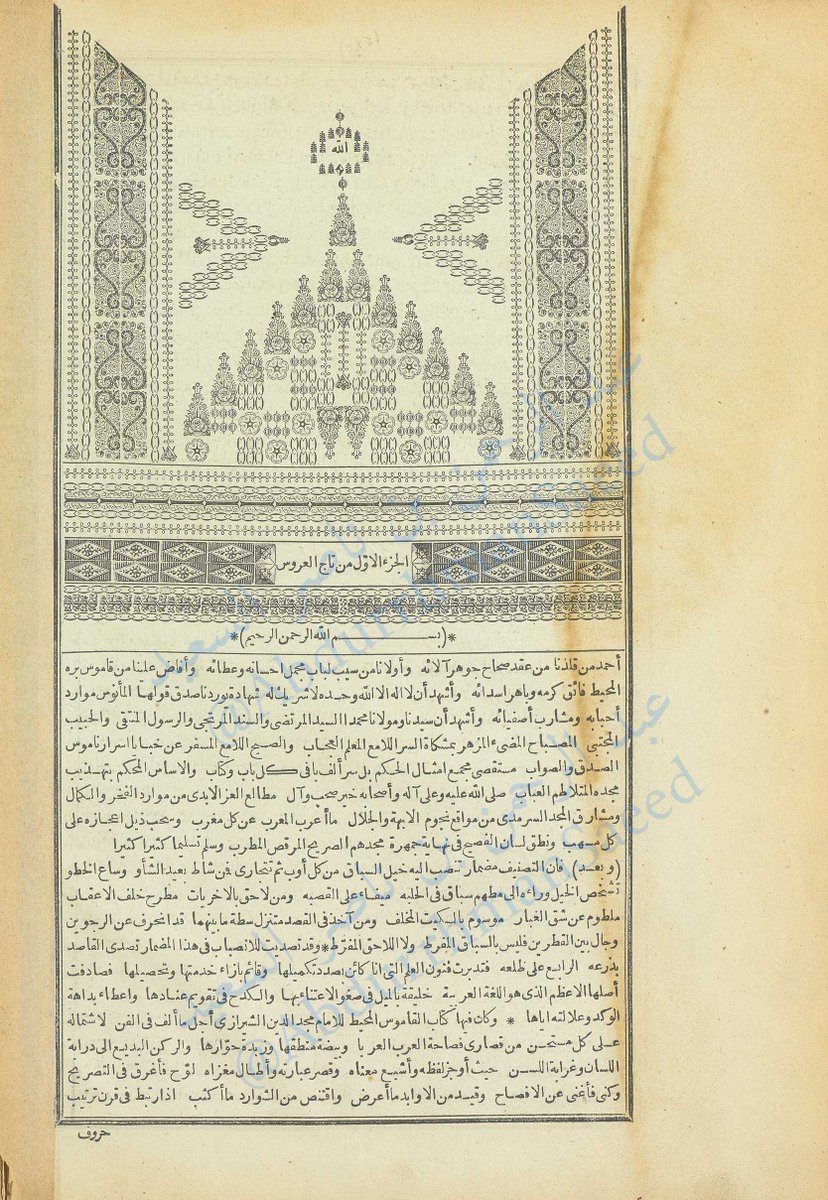 الله
الجزء الاول من تاج العروس
*(بسم الله الرحمن الرحيم)*
أحمد من قلدنا من عقد صحاح جوهر آلائه وأولانا من سيب لباب مجمل احسانه وعطائه وأفاض علينا من قاموس بره
المحيط فائق كرمه وباهر اسدائه وأشهد أن لا اله الا الله وحده لا شريك له شهادة يوردنا صدق قولها المأنوس موارد
أحبابه ومشارب أصفيائه وأشهد أن سيدنا ومولانا محمدا السيد المرتضى والسند المرتجى والرسول المنتقى والحبيب
المجتبى المصباح المضىء المزهر بمشكاة السر اللامع المعلم العجاب والصبح اللامع المسفر عن خبايا اسرار ناموس
الصدق والصواب مستقصى مجمع امثال الحكم بل سر ألف با فى كل باب وكتاب والاساس المحكم بتهذيب
مجده المتلاطم العباب صلى الله عليه وعلى آله وأصحابه خير صحب وآل مطالع العز الابدى من موارد الفخر والكمال
ومشارق المجد السرمدى من مواقع نجوم الابهة والجلال ما أعرب المعرب عن كل مغرب وسحب ذيل اعجازه على
كل مسهب ونطق لسان الفصيح فى نهاية جمهرة مجدهم الصريح المرقص المطرب وسلم تسليما كثيرا كثيرا
(وبعد) فان التصنيف مضمار تنصب اليه خيل السباق من كل أوب ثم تتجارى فمن شاط بعيد الشأو وساع الخطو
تشخص الخيل وراءه الى مطهم سباق فى الحلبه ميفاء على القصبه ومن لاحق بالاخريات مطرح خلف الاعقاب
ملطوم عن شق الغبار موسوم بالسكيت المخلف ومن آخذ فى القصد متنزل سطة ما بينهما قد انحرف عن الرجوين
وجال بين القطرين فليس بالسباق المفرط ولا اللاحق المفرط * وقد تصديت للانصباب فى هذا المضمار تصدى القاصد
بذرعه الرابع على ظلعه فتدبرت فنون العلم التى انا كائن بصدد تكميلها وقائم بازاء خدمتها وتحصيلها فصادفت
أصلها الاعظم الذى هو اللغة العربية خليقة بالميل فى صغو الاعتناء بها والكدح فى تقويم عنادها واعطاء بداهة
الوكد وعلالته اياها * وكان فيها كتاب القاموس المحيط للامام مجد الدين الشيرازى أجل ما ألف فى الفن لاشتماله
على كل مستحسن من قصارى فصاحة العرب العربا وبيضة منطقها وزبدة حوارها والركن البديع الى درابة
اللسان وغرابة اللسن حيث أوجز لفظه وأشبع معناه وقصر عبارته وأطال مغزاه لوح فأغرق فى التصريح
وكنى فأغنى عن الافصاح وقيد من الاوابد ما أعرض واقتنص من الشوارد ما أكثب اذ ارتبط فى قرن ترتيب
حروف